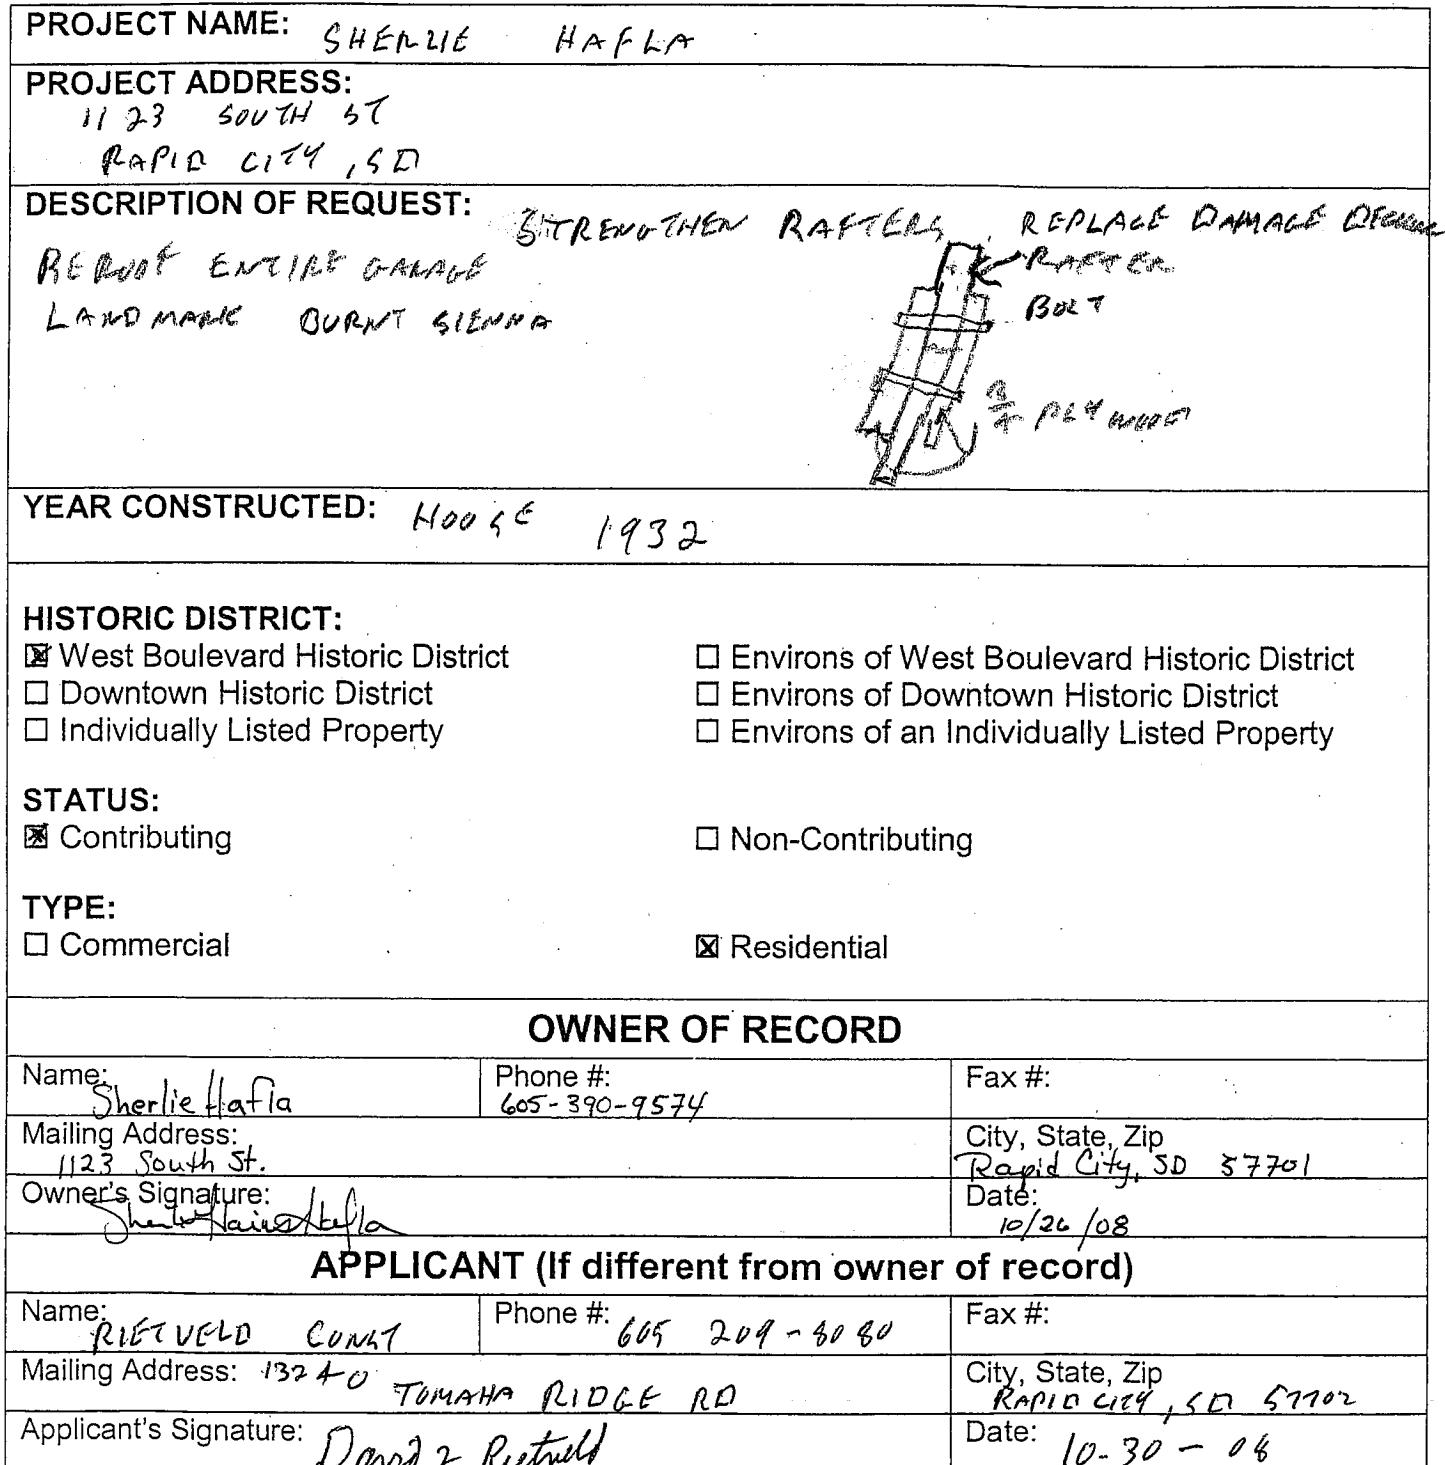 PROJECT NAME: SHERLIE HAFLA
PROJECT ADDRESS:
1123 SOUTH ST
RAPID CITY, SD
DESCRIPTION OF REQUEST: STRENGTHEN RAFTERS, REPLACE DAMAGE
REROOF ENTIRE GARAGE
RAFTER
LANDMARK BURNT SIENNA
BOLT
3/4 PLYWOOD
YEAR CONSTRUCTED: HOUSE 1932
HISTORIC DISTRICT:
☒ West Boulevard Historic District ☐ Environs of West Boulevard Historic District
☐ Downtown Historic District ☐ Environs of Downtown Historic District
☐ Individually Listed Property ☐ Environs of an Individually Listed Property
STATUS:
☒ Contributing ☐ Non-Contributing
TYPE:
☐ Commercial ☒ Residential
OWNER OF RECORD
Name: Sherlie Hafla Phone #: 605-390-9574 Fax #:
Mailing Address: 1123 South St. City, State, Zip Rapid City, SD 57701
Owner's Signature: Sherlie Haines Hafla Date: 10/26/08
APPLICANT (If different from owner of record)
Name: RIETVELD CONST Phone #: 605 209-8080 Fax #:
Mailing Address: 13240 TOMAHA RIDGE RD City, State, Zip RAPID CITY, SD 57702
Applicant's Signature: David L Rietveld Date: 10-30-08